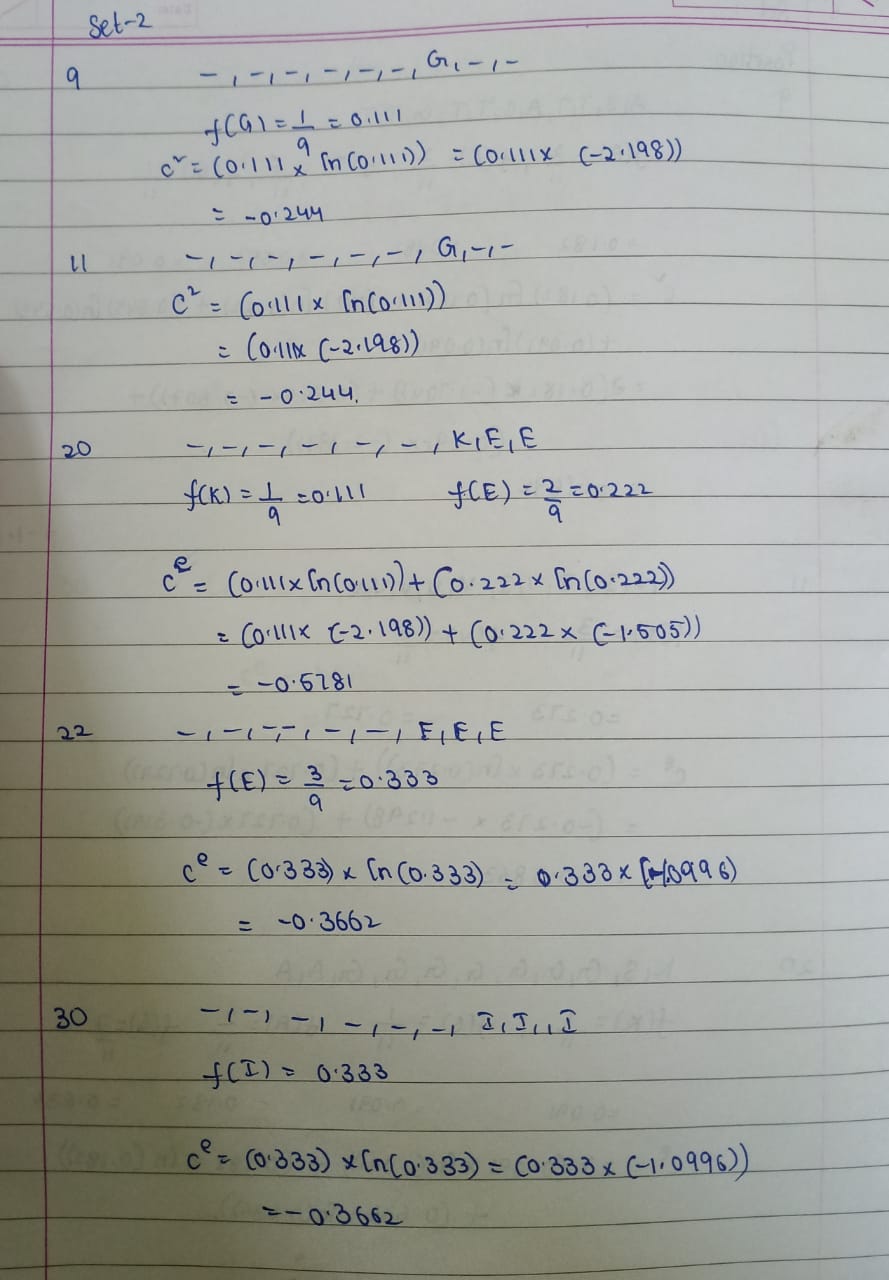 Set-2
9 -, -, -, -, -, -, G, -, -
f(G) = 1/9 = 0.111
c^e = (0.111 × ln(0.111)) = (0.111 × (-2.198))
= -0.244
11 -, -, -, -, -, -, G, -, -
C^2 = (0.111 × ln(0.111))
= (0.111× (-2.198))
= -0.244.
20 -, -, -, -, -, -, K, E, E
f(K) = 1/9 = 0.111 f(E) = 2/9 = 0.222
c^e = (0.111 × ln(0.111)) + (0.222 × ln(0.222))
= (0.111× (-2.198)) + (0.222 × (-1.505))
= -0.5781
22 -, -, -, -, -, -, E, E, E
f(E) = 3/9 = 0.333
c^e = (0.333) × ln(0.333) = 0.333 × (-1.0996)
= -0.3662
30 -, -, -, -, -, -, I, I, , I
f(I) = 0.333
c^e = (0.333) × ln(0.333) = (0.333 × (-1.0996))
= -0.3662